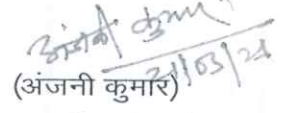 अंजनी कुमार
21/03/25
(अंजनी कुमार)